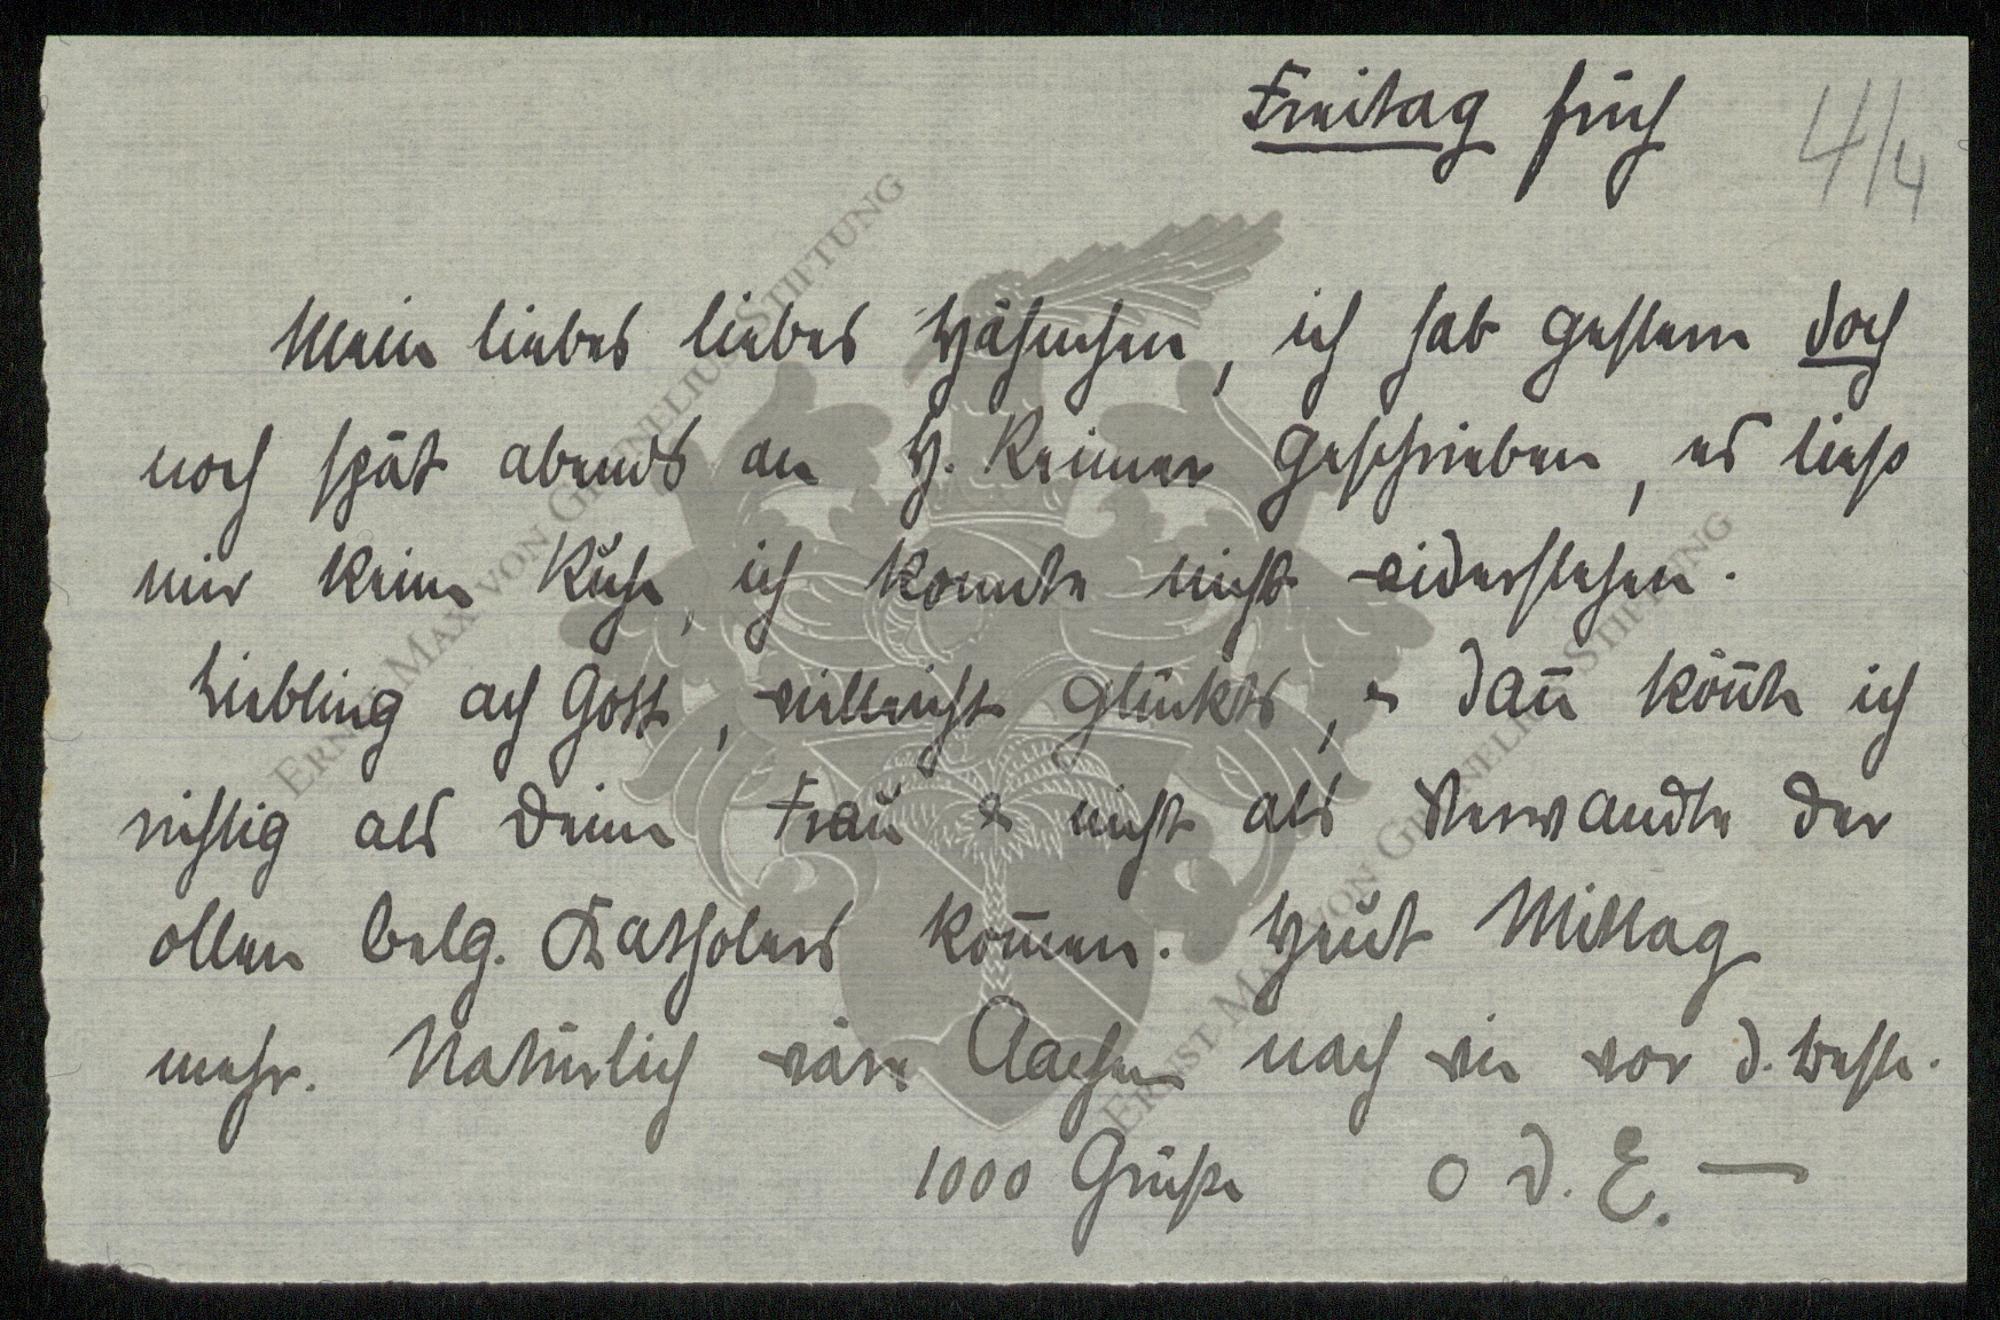 Freitag früh 4/4
Mein liebes liebes Hähnchen, ich hab gestern doch
noch spät abends an H. Reimer geschrieben, es ließ
mir keine Ruhe, ich konnte nicht widerstehen.
Liebling ach Gott, vielleicht glückts, & dan̅ kön̅te ich
richtig als Deine Frau & nicht als Verwandte der
ollen belg. Katholens kom̅en. Heut Mittag
mehr. Natürlich wäre Aachen nach wie vor d. beste.
1000 Grüße O D. E. —
ERNST MAX VON GRUNELIUS STIFTUNG
ERNST MAX VON GRUNELIUS STIFTUNG